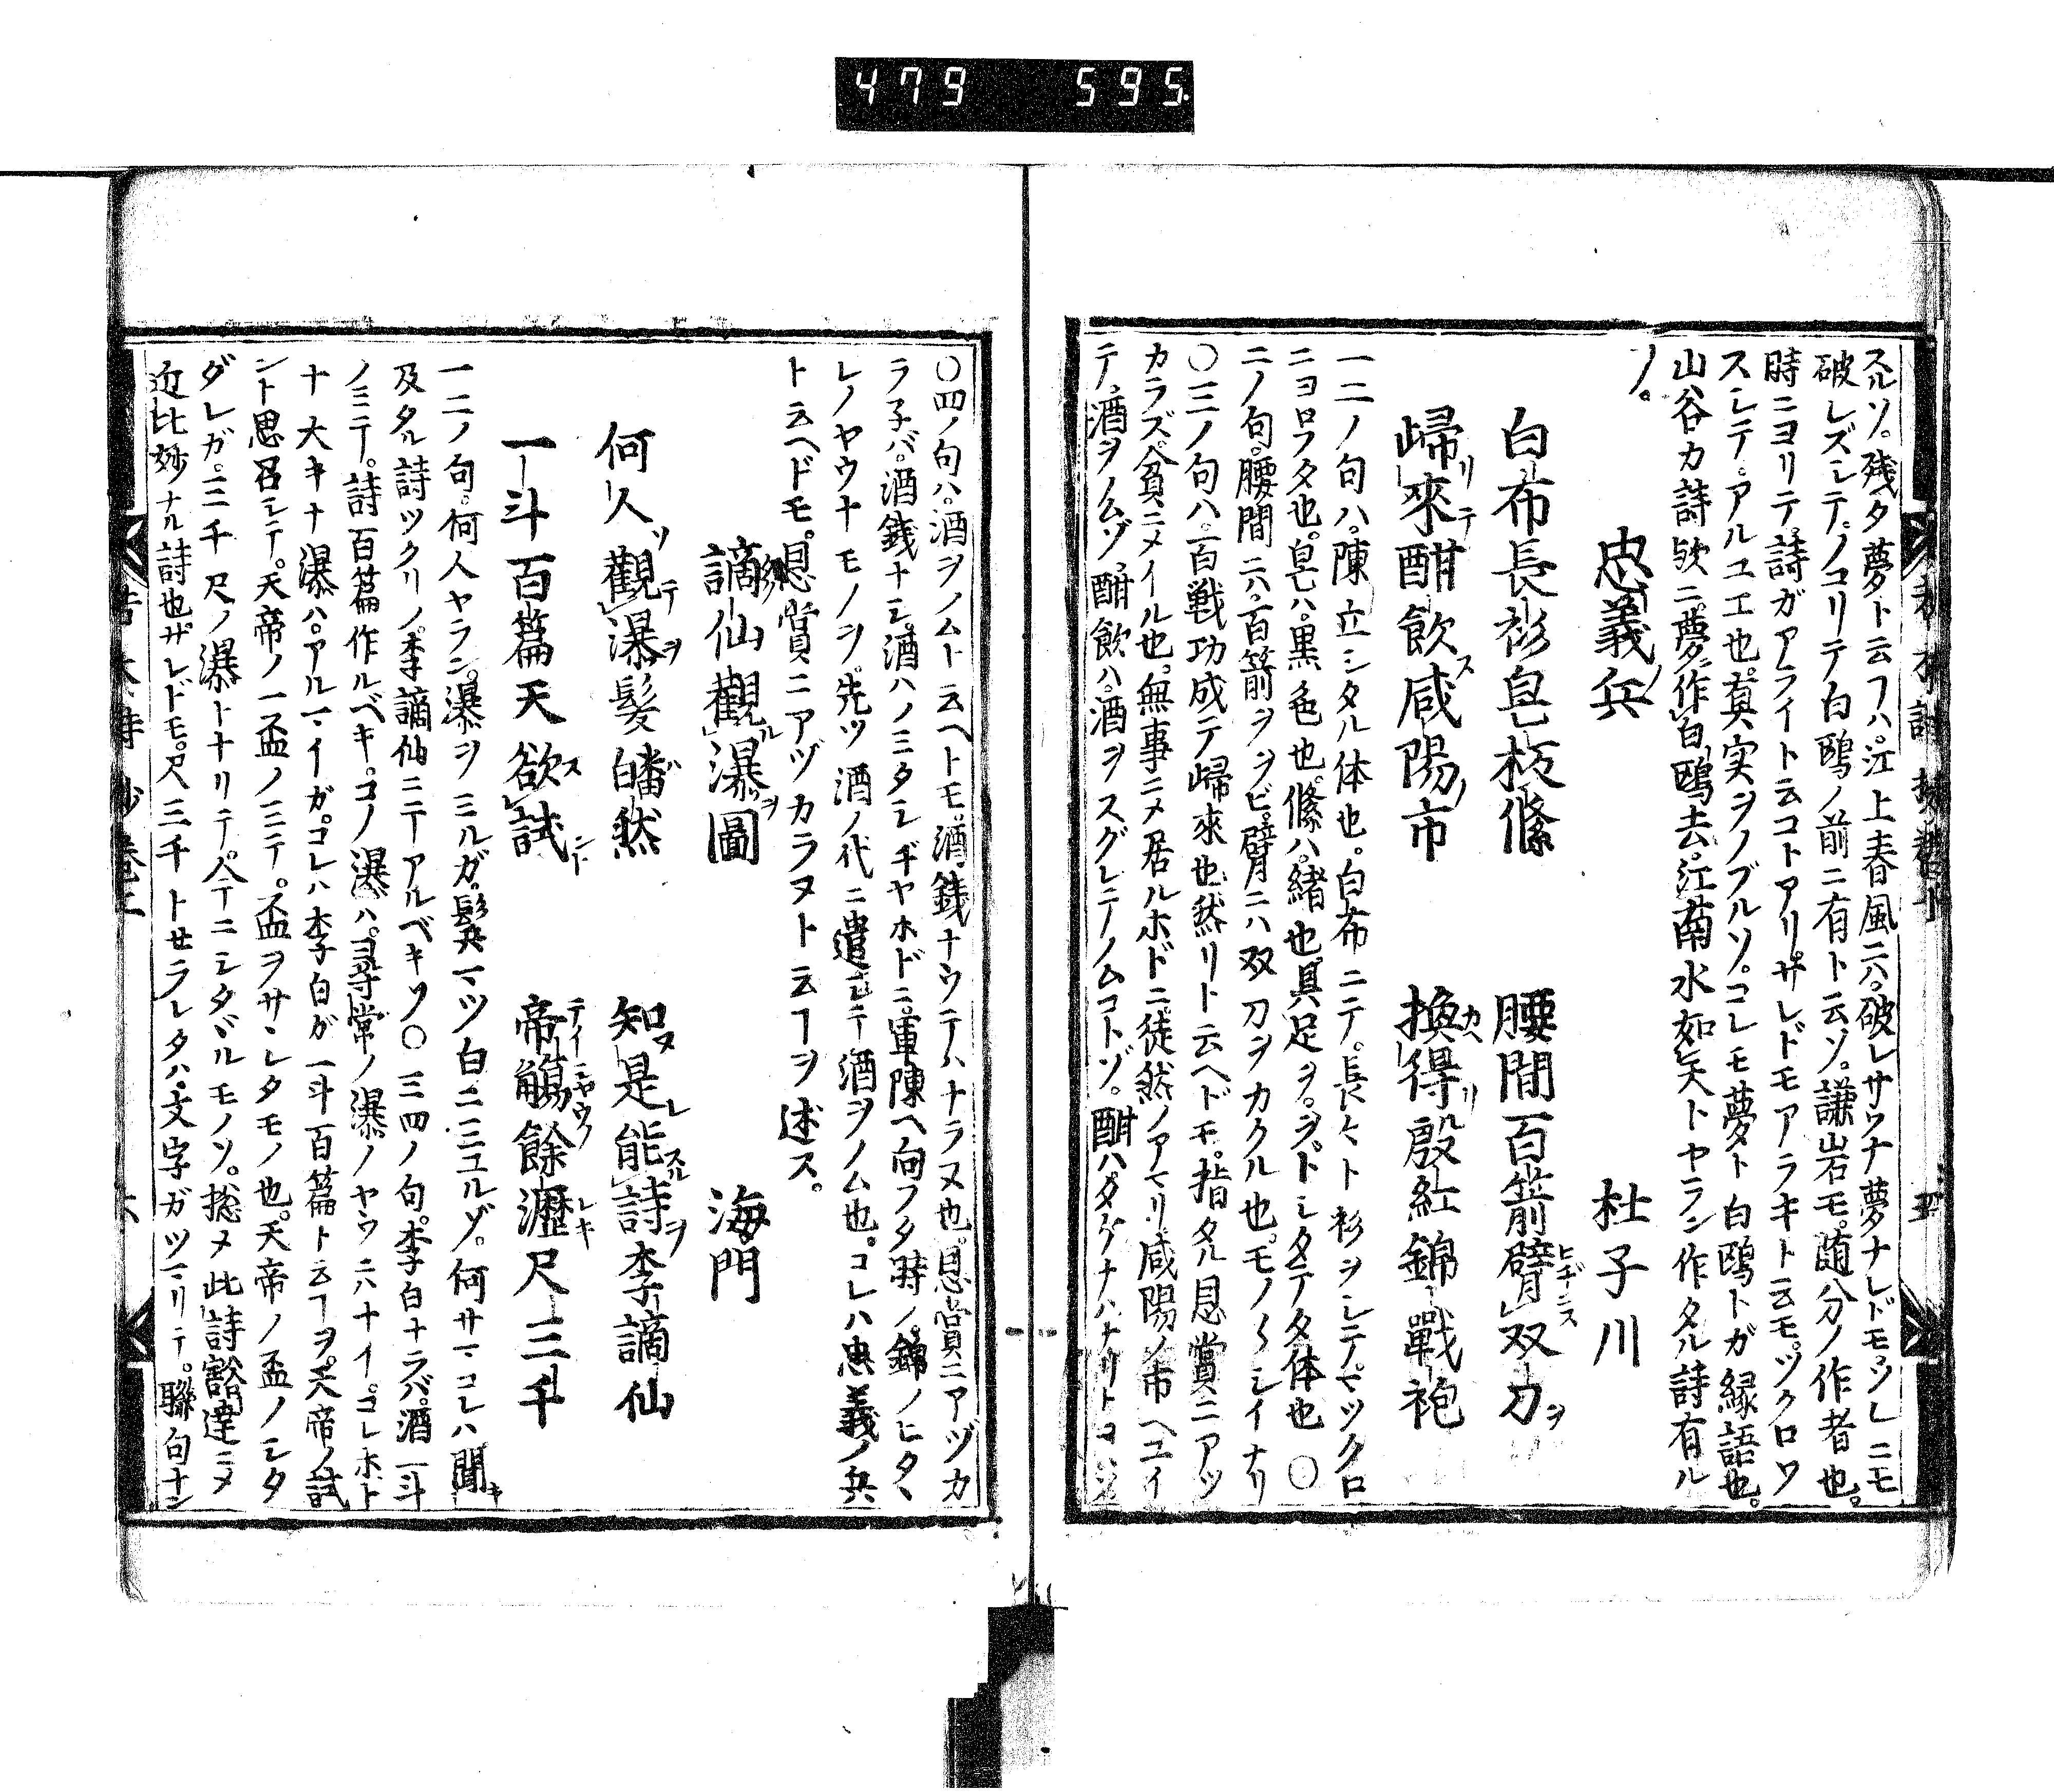 479 595
スルソ。残タ夢ト云フハ。江上春風ニハ。破レサウナ夢ナレドモ。ソレニモ
破レズシテ。ノコリテ白鴎ノ前ニ有ト云ソ。謙岩モ。随分ノ作者也。
時ニヨリテ。詩ガアライト云コトアリ。サレドモアラキト云モ。ツクロワ
スシテ。アルユエ也。真実ヲノブルソ。コレモ夢ト白鴎トガ縁語也。
山谷カ詩欤ニ。夢作白鴎去。江南水如天トヤラン作タル詩有ル
ソ。
忠義兵 杜子川
白布長衫皀板絛 腰間百箭臂双刀ヲ
歸リ來テ酣飲ス咸陽ノ市 換カヘ得リ殷紅錦戰袍
一二ノ句ハ。陳立シタル体也。白布ニテ。長々ト衫ヲシテ。マツクロ
ニヨロフタ也。皀ハ。黒色也。絛ハ。緒也。具足ヲ。ヲトシタテタ体也〇
二ノ句。腰間ニハ。百箭ヲヲビ。臂ニハ双刀ヲカクル也。モノ〱シイナリ
〇三ノ句ハ。百戦功成テ歸來也。然リト云ヘドモ。指タル恩賞ニアツ
カラズ。貧ニメイル也。無事ニメ居ルホドニ。徒然ノアマリ咸陽ノ市ヘユイ
テ。酒ヲノムゾ。酣飲ハ。酒ヲスグレテノムコトゾ。
〇四ノ句ハ。酒ヲノムト云ヘトモ。酒銭ナウテハナラヌ也。恩賞ニアヅカ
ラ子バ。酒銭ナシ。酒ハノミタシ。ヂヤホドニ。軍陳ヘ向フタ時ノ。錦ノヒタヽ
レノヤウナモノヲ。先ツ酒ノ代ニ遣シテ酒ヲノム也。コレハ忠義ノ兵
ト云ヘドモ。恩賞ニアヅカラヌト云ヿヲ述ス。
謫仙觀ル瀑ヲ圖 海門
何人ソ觀テ瀑ヲ髪皤然 知ヌ是レ能スル詩ヲ李謫仙
一斗百篇天欲ス試ント 帝テイ觴シヤウノ餘瀝レキ尺三千
一二ノ句。何人ヤラン。瀑ヲミルガ。髪マツ白ニミユルゾ。何サマコレハ聞キ
及タル詩ツクリノ。李謫仙ニテアルベキソ〇三四ノ句。李白ナラバ。酒一斗
ノミテ。詩百篇作ルベキ。コノ瀑ハ。尋常ノ瀑ノヤウニハナイ。コレホト
ナ大キナ瀑ハ。アルマイガ。コレハ李白ガ一斗百篇ト云ヿヲ。天帝ノ試
ント思召シテ。天帝ノ一盃ノミテ。盃ヲサヽレタモノ也。天帝ノ盃ノシタ
ダレガ。三千尺ノ瀑トナリテ。今ニシタヾルモノソ。揔メ此詩豁達ニメ
近比妙ナル詩也。サレドモ。尺三千トセラレタハ。文字ガツマリテ。聯句ナン